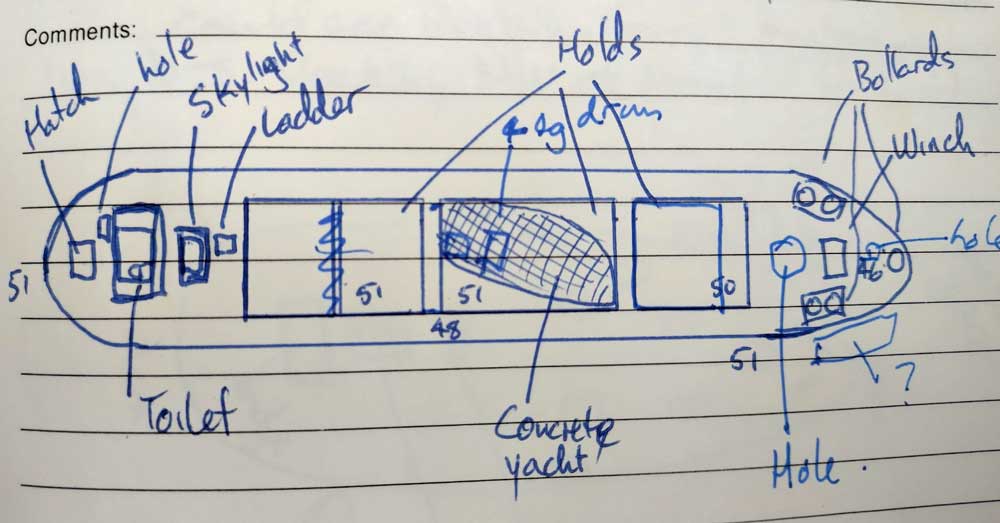 Comments:
Hatch
hole
Skylight
Ladder
Holds
sg drum
Bollards
Winch
hole
51
51
51
48
50
46
51
?
Toilet
Concrete
yacht
Hole.